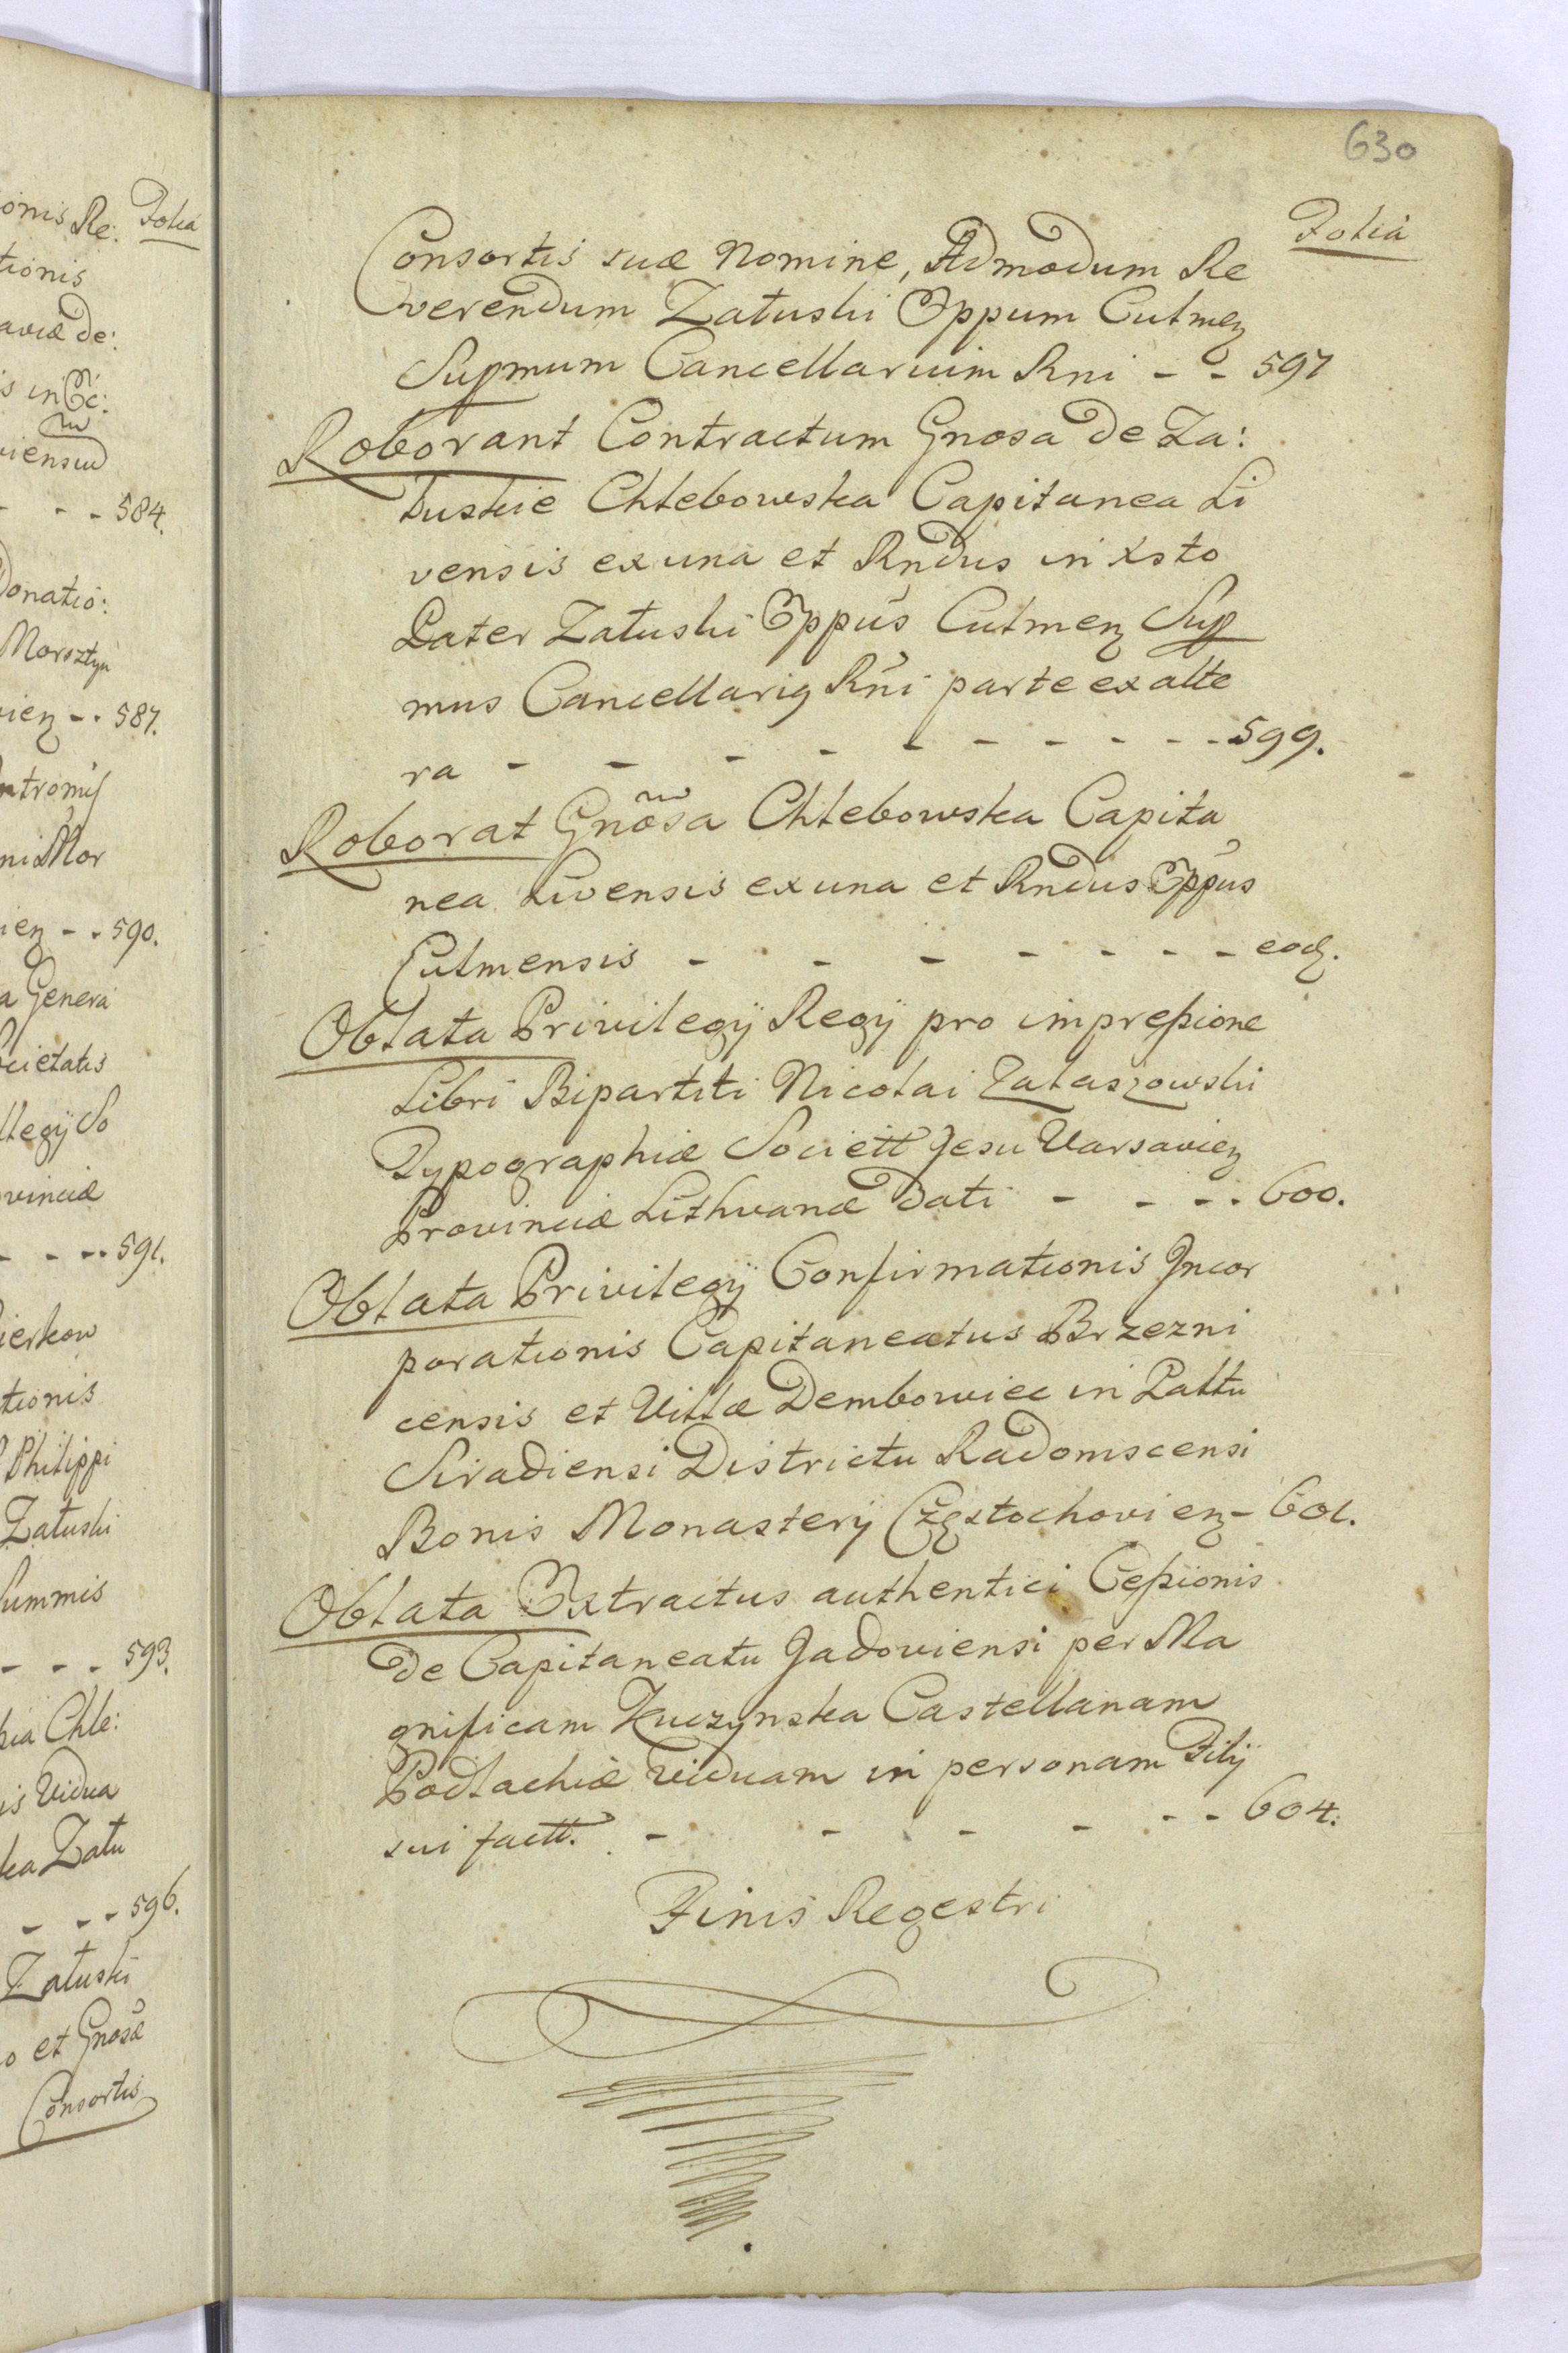 onis Re: Folia
tionis
aviæ de:
is in Gč:
viensiu
- - - 584.
Donatio:
Morsztyn
vien - - 587.
ntromis
ni Mor
ien - - 590.
a Genera
ocietatis
llegÿ So
vinciæ
- - - - 591.
ierkow
tionis
Philippi
Załuski
Summis
- - - 593.
kia Chle:
is Vidua
ka Zału
- - - 596.
Załuski
o et Gnosæ
Consortis
630
Folia
Consortis suæ Nomine, Admodum Re
verendum Załuski Eppum Culmeņ
Supmum Cancellarium Rni - - 597
Roborant Contractum Gnosa de Za:
łuskie Chlebowska Capitanea Li
vensis ex una et Rndus in Xsto
Pater Załuski Eppus Culmeņ Sup
mus Cancellarig Rni parte ex alte
ra - - - - - - - - - - 599.
Roborat Gnõsa Chlebowska Capita
nea Livensis ex una et Rndus Eppus
Culmensis - - - - - - - - eod.
Oblata Privilegÿ Regÿ pro impreßione
Libri Bipartiti Nicolai Zalaszowski
Typographiæ Societt Jesu Varsavieņ
Provinciæ Lithvanæ dati - - - - 600.
Oblata Privilegÿ Confirmationis Incor
porationis Capitaneatus Brzezni
censis et Villæ Dembowiec in Pallu
Siradiensi Districtu Radomscensi
Bonis Monasterÿ Częstochovieņ - 601.
Oblata Extractus authentici Ceßionis
de Capitaneatu Jadoviensi per Ma
gnificam Kuczynska Castellanam
Podlachiæ viduam in personam Filÿ
sui factt. - - - - - - 604.
Finis Regestri